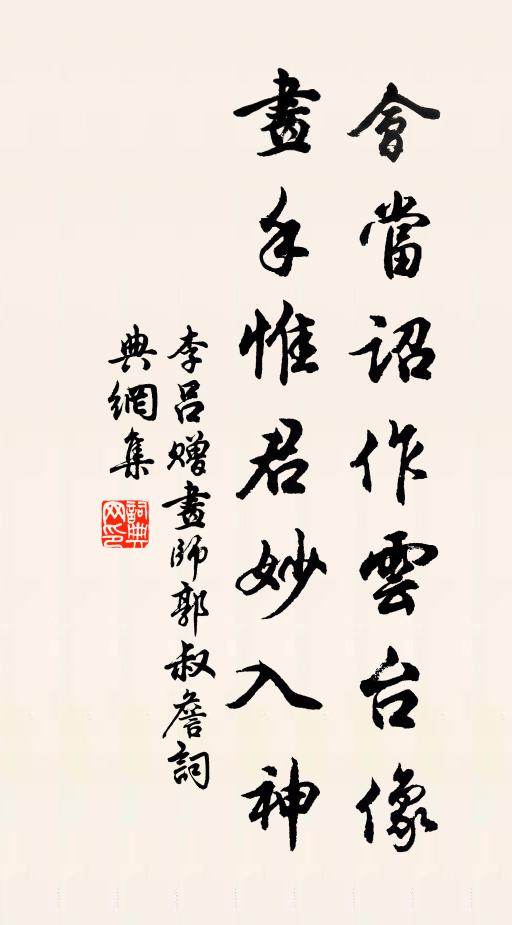 會當詔作雲台像
畫手惟君妙入神
李呂贈畫師郭叔詹詞
典網集
詞典网印